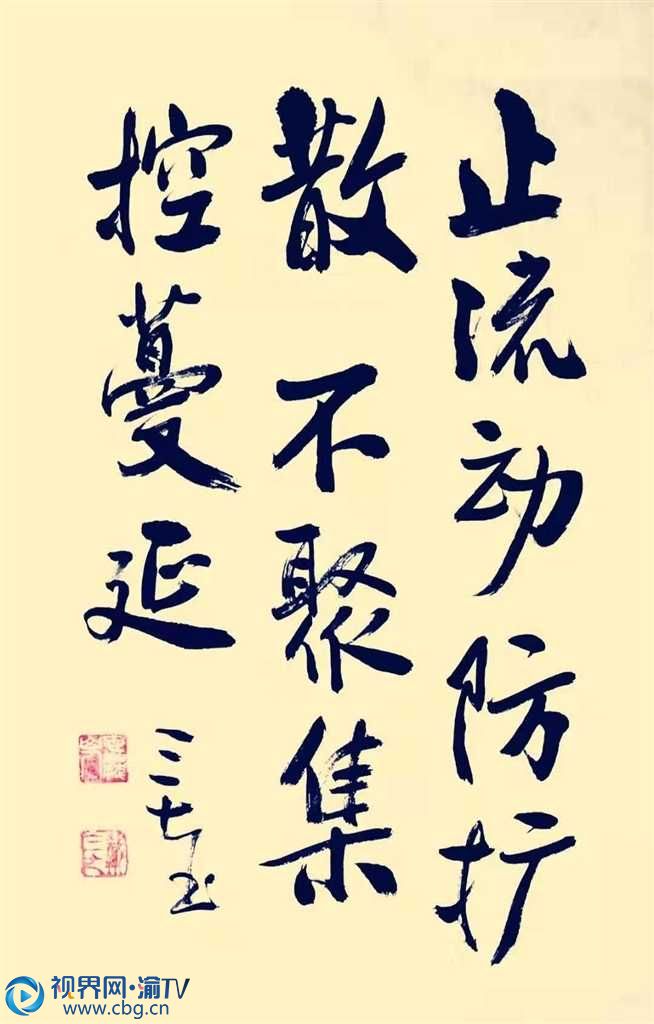 止流动防扩
散不聚集
控蔓延
三七书
视界网·渝TV
www.cbg.cn